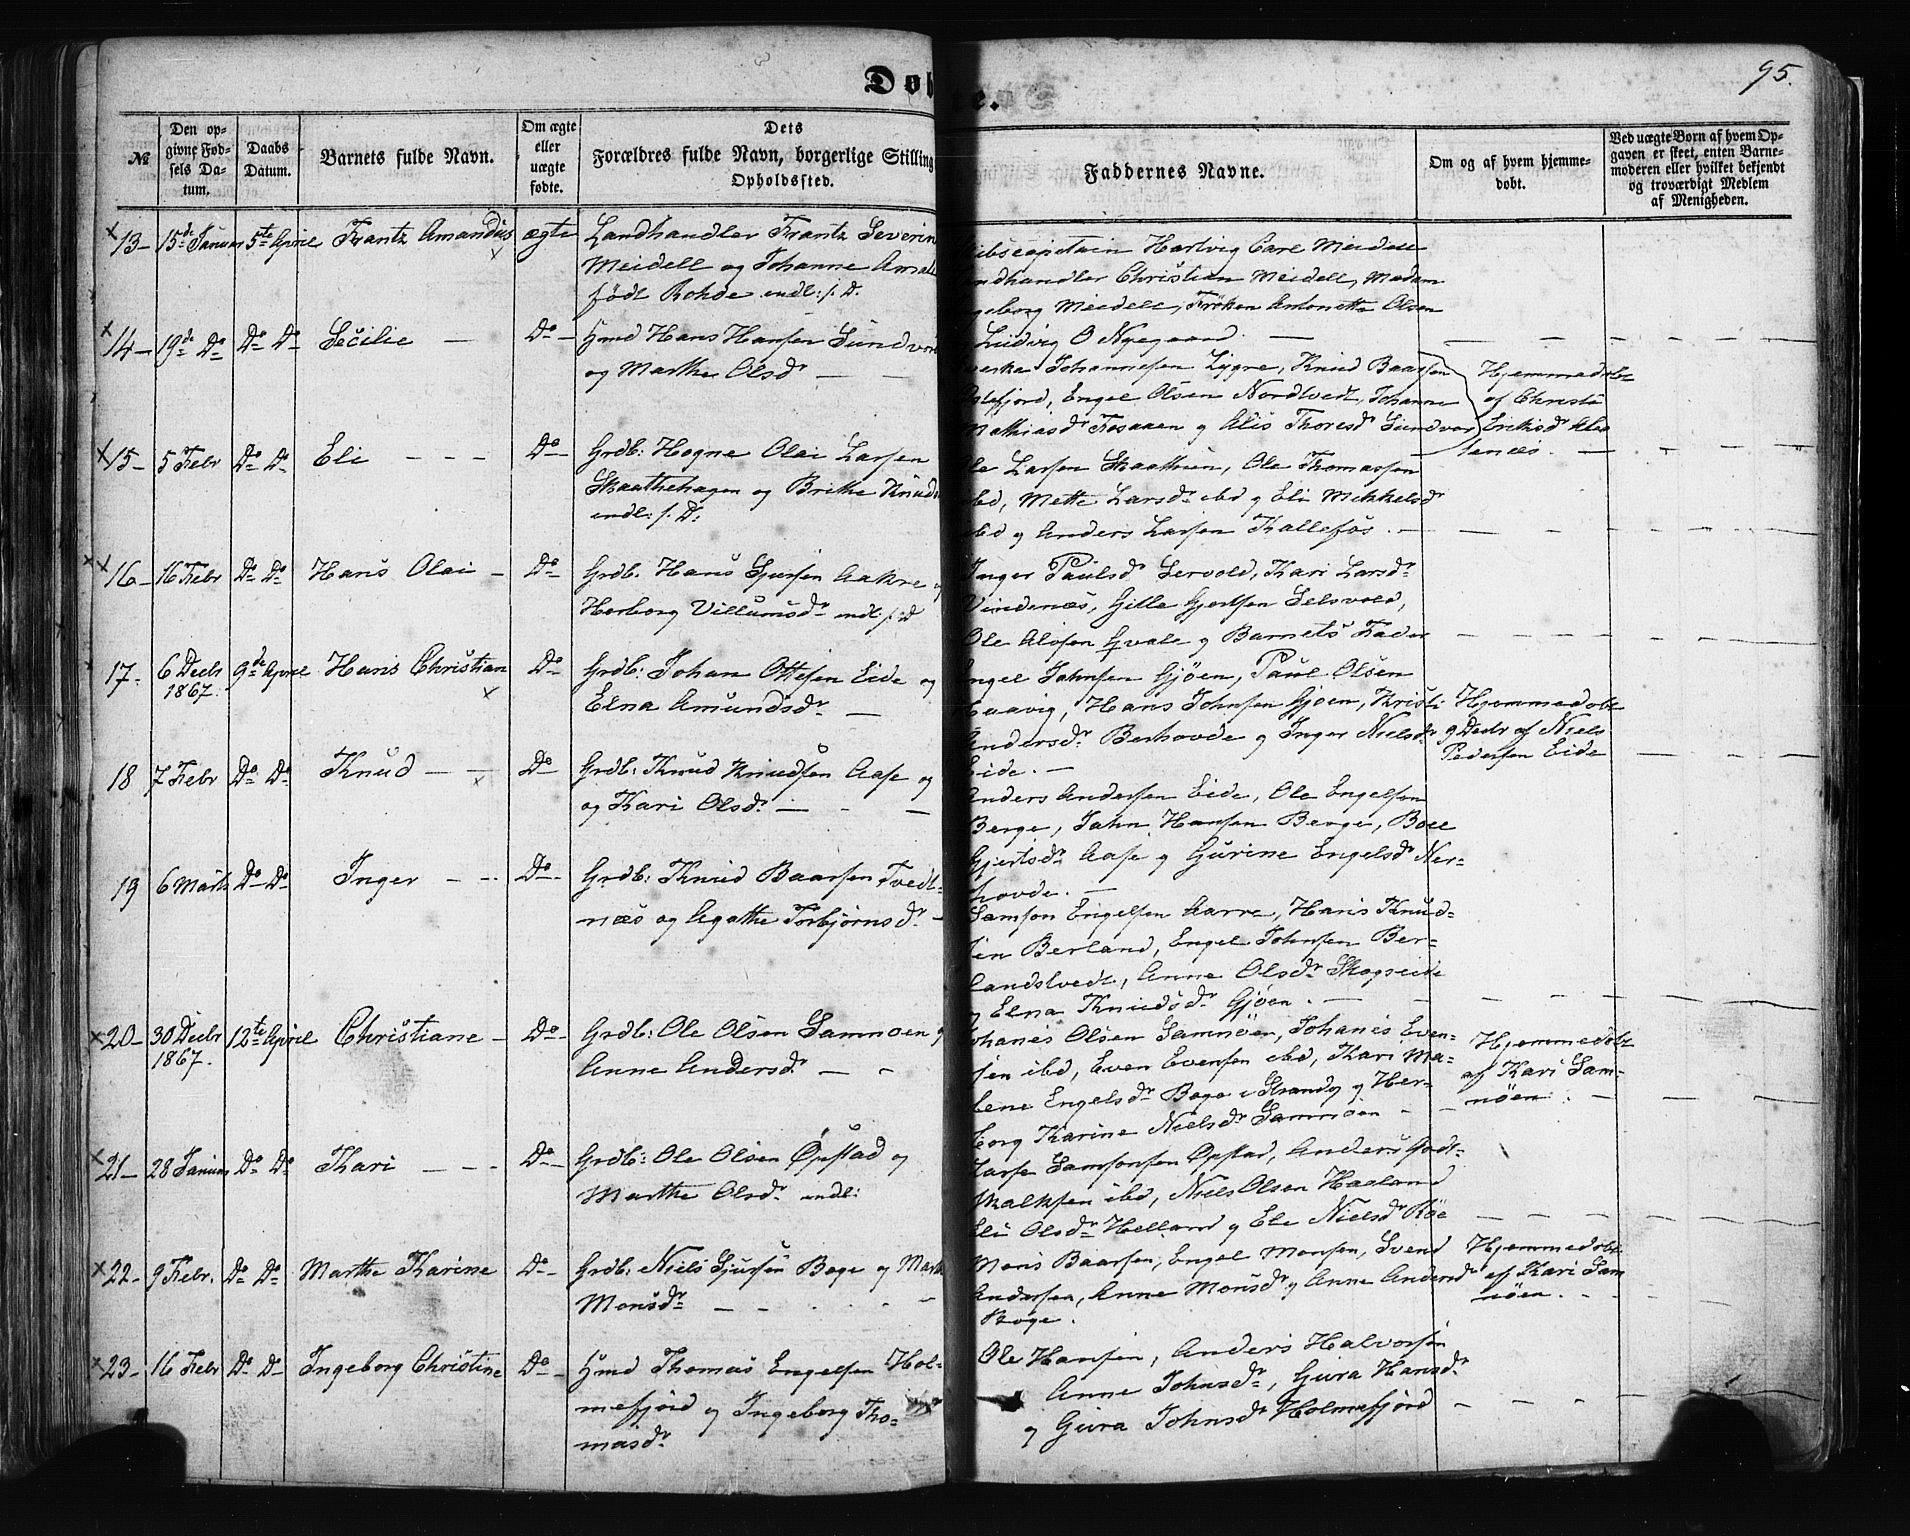 Døb
te.
95.
№
Den op-
givne Fød-
sels Da-
tum.
Daabs
Datum.
Barnets fulde Navn.
Om ægte
eller
uægte
fødte.
Dets
Forældres fulde Navn, borgerlige Stilling
Opholdssted.
Faddernes Navne.
Om og af hvem hjemme-
døbt.
Ved uægte Børn af hvem Op-
gaven er skeet, enten Barne-
moderen eller hvilket bekjendt
og troværdigt Medlem
af Menigheden.
13 15de Januar 5te April Frantz Amandus ægte Landhandler Frantz Severin
Meidell og Johanne Amal
født Rohde indl: s. D.
ibscapitain Hartvig Carl Meidell
ndhandler Christian Meidell, Madam
geborg Meidell, Frøken Antonette Olsen
Ludvig O Nyegaard. —
14 19de Do Do Do Secilie — Do Hmd Hans Hansen Sundvor
og Marthe Olsdr — —
Johannesen Lygre, Knud Baarsen
fjord, Engel Olsen Nordtvedt, Johanne
Mathiasdr Fosaaen og Alis Thoresdr Sundvor
Hjemmedøbt
af Christi
Eriksdr
15 5 Febr Do Do Eli — — — Do Grdb: Hogne Olai Larsen
Skaathehagen og Brithe Knuds
indl: s. D:
Ole Larsen Skaathun, Ole Thomassen
ibd, Mette Larsdr ibd og Eli Mikkelsdr
ibd og Anders Larsen Kallefos. —
16 16 Febr Do Do Hans Olai — Do Grdb. Hans Sjursen Aakre og
Herborg Villumsdr indl: s. D
Inger Paulsdr Servold, Kari Larsdr
Vindenæs, Gille Gjertsen Selsvold,
Ole Alofsen Qvale og Barnets Fader
17. 6 Decbr 1867. 9de April Hans Christian Do Grdb: Johan Ottesen Eide og
Elna Amundsdr —
Engel Johnsen Gjøen, Paul Olsen
Vaavig, Hans Johnsen Gjøen, Kristi
Andersdr Berhovde og Inger Nielsdr
Eide. —
Hjemmedøbt
9 Decbr af Niels
Pedersen Eide
18 7 Febr Do Do Knud — — Do Grdb: Knud Knudsen Aase og
og Kari Olsdr. — — —
Anders Andersen Eide, Ole Engelsen
Berge, John Hansen Berge, Boel
Gjertsdr Aase og Gurine Engelsdr Ner-
hovde. —
19 6 Marts Do Do Inger — — Do Grdb: Knud Baarsen Tvedt-
næs og Agathe Torbjørnsdr —
Samson Engelsen Aarre, Hans Knud-
sen Berland, Engel Johnsen Ber-
landstvedt, Anne Olsdr Skogseide
og Elna Knudsdr Gjøen. —
20 30 Decbr 1867. 12te April Christiane — Do Grdb: Ole Olsen Samnøen og
Anne Andersdr. — —
Johanes Olsen Samnøen, Johanes Even-
sen ibd, Even Evensen ibd, Kari Ma-
lene Engelsdr Boge i Strandv og Her-
borg Karine Nielsdr Samnøen —
Hjemmedøbt
af Kari Sam-
nøen. —
21 28 Januar Do Do Kari — — Do Grdb: Ole Olsen Opstad og
Marthe Olsdr indl:
Larse Samsonsen Opstad, Anders Godt-
skalksen ibd, Niels Olsen Haaland
Eli Olsdr Helland og Eli Nielsdr Røe
22 9 Febr. Do Do Marthe Karine Do Grdb: Niels Sjursen Boge og Marth
Monsdr — —
Mons Baarsen, Engel Monsen, Svend
Andersen, Anne Monsdr og Anne Andersdr
Boge.
Hjemmedøbt
af Kari Sam
nøen.
23 16 Febr Do Do Ingeborg Christine Do Hmd Thomas Engelsen Hol-
mefjord og Ingeborg Tho-
masdr
Ole Hansen, Anders Halvorsen
Anne Johnsdr, Gura Hansdr
og Gura Johnsdr Holmefjord